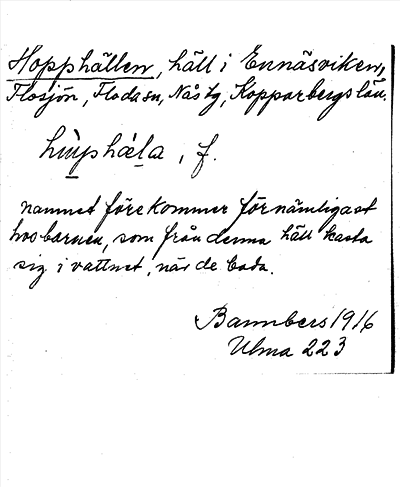 Hopphällen, häll i Ennäsviken,
Flosjön, Floda sn, Nås tg, Kopparbergs län.
hùphæla, f.
namnet förekommer förnämligast
hos barnen, som från denna häll kasta
sig i vattnet, när de bada.
Bannbers 1916
Ulma 223